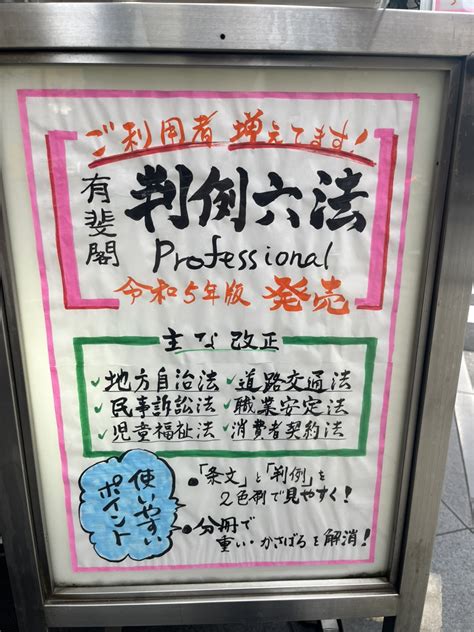 ご利用者 増えてます!
有斐閣
判例六法
Professional
令和5年版 発売
主な改正
✓地方自治法 ✓道路交通法
✓民事訴訟法 ✓職業安定法
✓児童福祉法 ✓消費者契約法
使いやすい
ポイント
•「条文」と「判例」を
2色刷で見やすく!
•分冊で
重い・かさばるを解消!